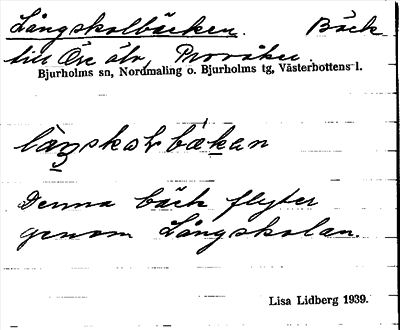 Långskolbäcken. Bäck
till Öre älv,
Bjurholms sn, Nordmaling o. Bjurholms tg, Västerbottens l.
Denna bäck flyter
genom Långskolan.
Lisa Lidberg 1939.